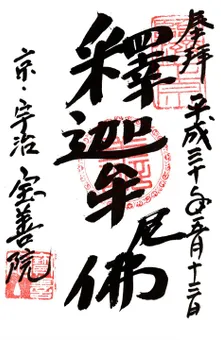 奉拝
平成三十年五月十三日
釋迦牟尼佛
京・宇治
宝善院